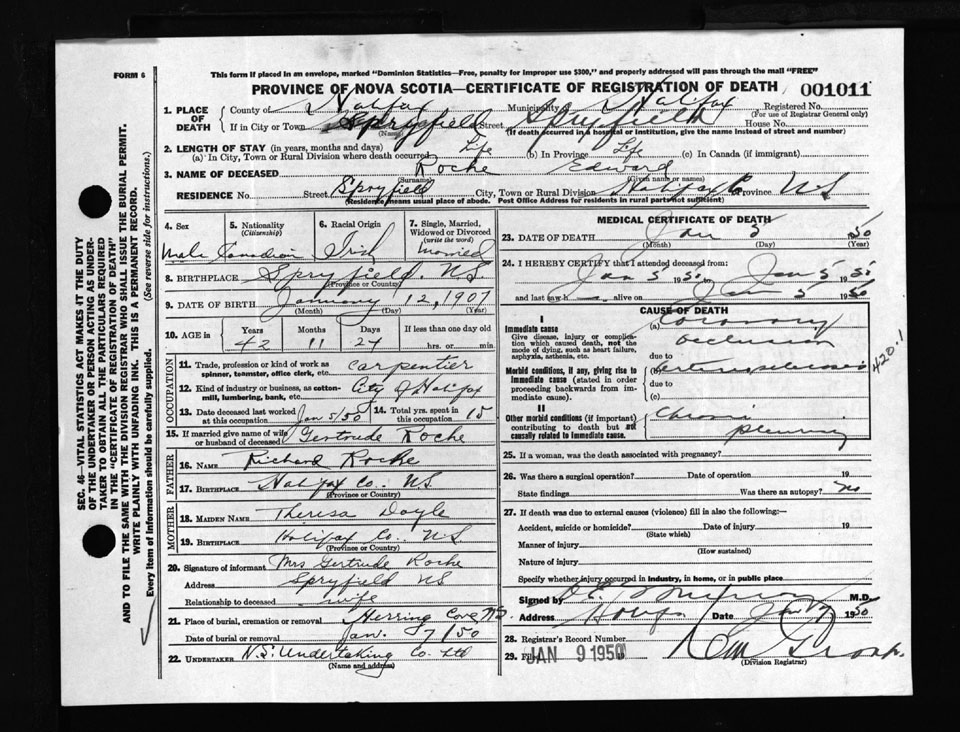 FORM 6
This form if placed in an envelope, marked "Dominion Statistics—Free, penalty for improper use $300," and properly addressed will pass through the mail "FREE"
PROVINCE OF NOVA SCOTIA—CERTIFICATE OF REGISTRATION OF DEATH 001011
1. PLACE OF DEATH County of Halifax Municipality Halifax Registered No.
(For use of Registrar General only)
If in City or Town Spryfield Street Spryfield House No.
(Name) (If death occurred in a hospital or institution, give the name instead of street and number)
2. LENGTH OF STAY (in years, months and days)
(a) In City, Town or Rural Division where death occurred Life (b) In Province Life (c) In Canada (if immigrant)
3. NAME OF DECEASED Roche Edward
(Surname) (Given name or names)
RESIDENCE No. Street Spryfield City, Town or Rural Division Halifax Co Province N S
(Residence means usual place of abode. Post Office Address for residents in rural parts not sufficient)
4. Sex 5. Nationality (Citizenship) 6. Racial Origin 7. Single, Married, Widowed or Divorced (write the word)
Male Canadian Irish married
8. BIRTHPLACE Spryfield. N.S
(Province or Country)
9. DATE OF BIRTH January 12, 1907
(Month) (Day) (Year)
10. AGE in Years Months Days If less than one day old
42 11 24 hrs. or min.
OCCUPATION
11. Trade, profession or kind of work as spinner, teamster, office clerk, etc. Carpentier
12. Kind of industry or business, as cotton-mill, lumbering, bank, etc. City of Halifax
13. Date deceased last worked at this occupation Jan 5/50 14. Total yrs. spent in this occupation 15
15. If married give name of wife or husband of deceased Gertrude Roche
FATHER
16. NAME Richard Roche
17. BIRTHPLACE Halifax Co.. N.S.
(Province or Country)
MOTHER
18. MAIDEN NAME Theresa Doyle
19. BIRTHPLACE Halifax Co.. N.S
(Province or Country)
20. Signature of informant Mrs Gertrude Roche
Address Spryfield NS
Relationship to deceased wife
21. Place of burial, cremation or removal Herring Cove N.S.
Date of burial or removal Jan. 7/50
22. UNDERTAKER N.S. Undertaking Co. Ltd
(Name and address)
MEDICAL CERTIFICATE OF DEATH
23. DATE OF DEATH Jan 5 1950
(Month) (Day) (Year)
24. I HEREBY CERTIFY that I attended deceased from
Jan 5 1950 to Jan 5 1950
and last saw h alive on Jan 5 1950
CAUSE OF DEATH
I
Immediate cause
Give disease, injury or complication which caused death, not the mode of dying, such as heart failure, asphyxia, asthenia, etc.
(a) Coronary Occlusion
due to
Morbid conditions, if any, giving rise to immediate cause (stated in order proceeding backwards from immediate cause).
(b) Arteriosclerosis
due to
(c)
420.1
II
Other morbid conditions (if important) contributing to death but not causally related to immediate cause.
Chronic pleurisy
25. If a woman, was the death associated with pregnancy?
26. Was there a surgical operation? Date of operation 19
State findings Was there an autopsy? no
27. If death was due to external causes (violence) fill in also the following:—
Accident, suicide or homicide? Date of injury 19
(State which)
Manner of injury
(How sustained)
Nature of injury
Specify whether injury occurred in industry, in home, or in public place
Signed by M.D.
Address Date Jan 1950
28. Registrar's Record Number
29. Filed JAN 9 1950
(Division Registrar)
SEC. 46—VITAL STATISTICS ACT MAKES IT THE DUTY
OF THE UNDERTAKER OR PERSON ACTING AS UNDER-
TAKER TO OBTAIN ALL THE PARTICULARS REQUIRED
IN THE "CERTIFICATE OF REGISTRATION OF DEATH"
AND TO FILE THE SAME WITH THE DIVISION REGISTRAR WHO SHALL ISSUE THE BURIAL PERMIT.
WRITE PLAINLY WITH UNFADING INK. THIS IS A PERMANENT RECORD.
Every item of Information should be carefully supplied. (See reverse side for instructions.)